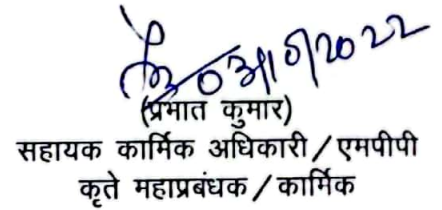 (प्रभात कुमार)
सहायक कार्मिक अधिकारी / एमपीपी
कृते महाप्रबंधक / कार्मिक